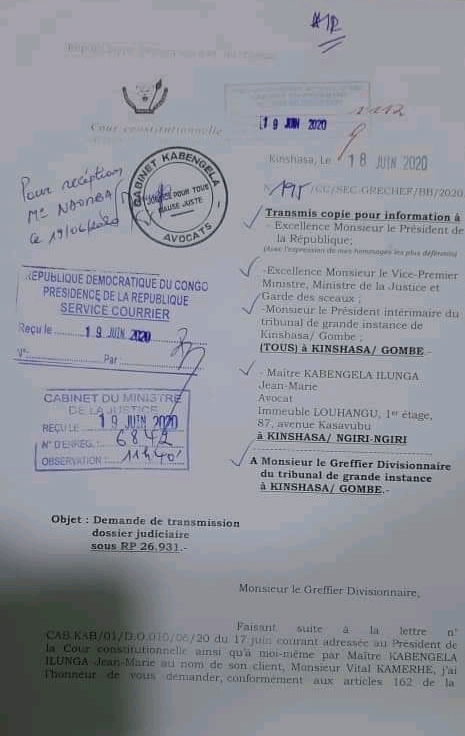 #12
République Démocratique du Congo
Cour constitutionnelle
19 JUIN 2020
Kinshasa, Le 18 JUIN 2020
N° 195/CC/SEC.GRECHEF/BB/2020
Pour réception
Me NDOMBA
Ce 19/06/2020
CABINET KABENGELA
JUSTICE POUR TOUS
CAUSE JUSTE
AVOCATS
Transmis copie pour information à
- Excellence Monsieur le Président de
la République;
(Avec l'expression de mes hommages les plus déférents)
-Excellence Monsieur le Vice-Premier
Ministre, Ministre de la Justice et
Garde des sceaux ;
-Monsieur le Président intérimaire du
tribunal de grande instance de
Kinshasa/ Gombe;
(TOUS) à KINSHASA/ GOMBE.-
REPUBLIQUE DEMOCRATIQUE DU CONGO
PRESIDENCE DE LA REPUBLIQUE
SERVICE COURRIER
Reçu le 19 JUIN 2020
N°: Par :
- Maître KABENGELA ILUNGA
Jean-Marie
Avocat
Immeuble LOUHANGU, 1er étage,
87, avenue Kasavubu
à KINSHASA/ NGIRI-NGIRI
CABINET DU MINISTRE
DE LA JUSTICE
REÇU LE : 19 JUIN 2020
N° D'ENREG. : 6842
OBSERVATION : 11h40'
A Monsieur le Greffier Divisionnaire
du tribunal de grande instance
à KINSHASA/ GOMBE.-
Objet : Demande de transmission
dossier judiciaire
sous RP 26.931.-
Monsieur le Greffier Divisionnaire,
Faisant suite à la lettre n°
CAB.KAB/01/D.O.010/06/20 du 17 juin courant adressée au Président de
la Cour constitutionnelle ainsi qu'à moi-même par Maître KABENGELA
ILUNGA Jean-Marie au nom de son client, Monsieur Vital KAMERHE, j'ai
l'honneur de vous demander, conformément aux articles 162 de la